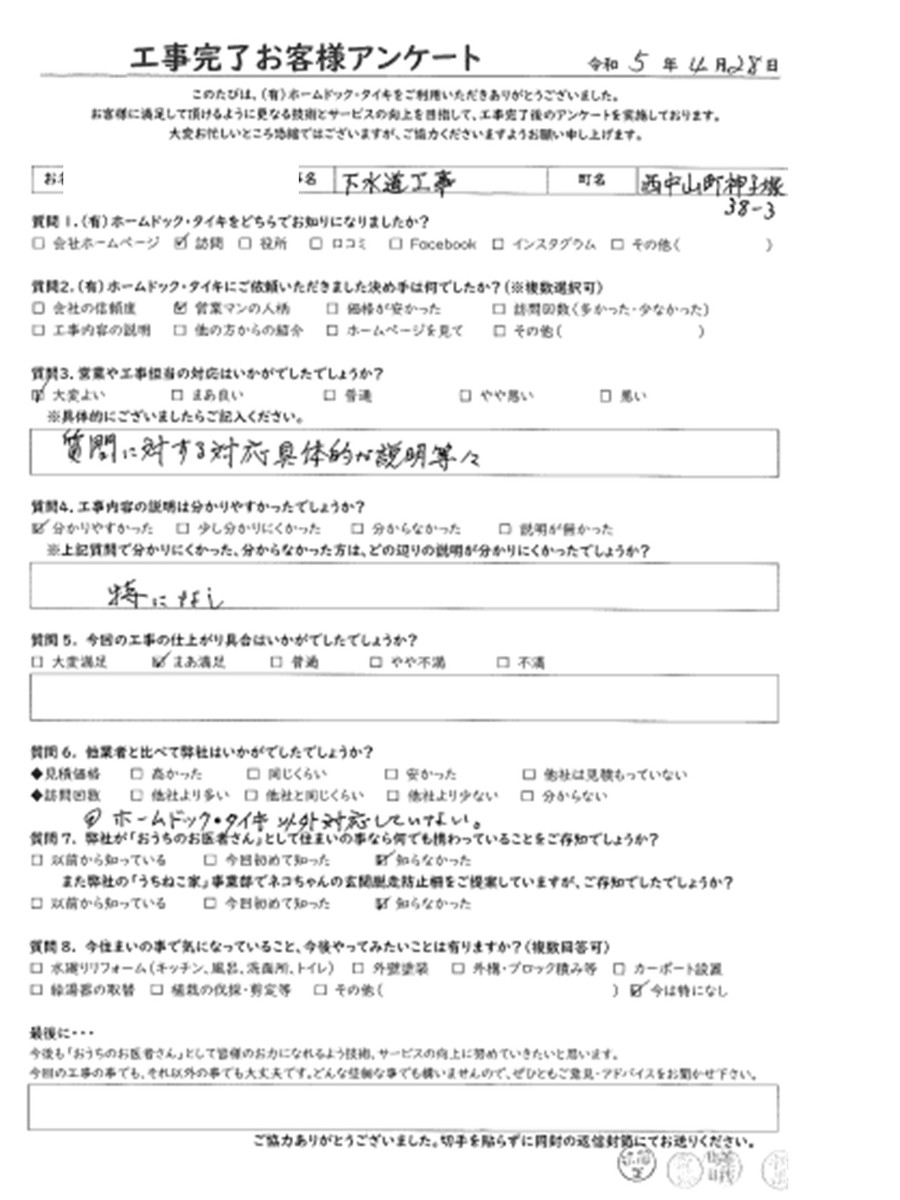 工事完了お客様アンケート 令和 5 年 4 月 28 日
このたびは、(有)ホームドック・タイキをご利用いただきありがとうございました。
お客様に満足して頂けるように更なる技術とサービスの向上を目指して、工事完了後のアンケートを実施しております。
大変お忙しいところ恐縮ではございますが、ご協力くださいますようお願い申し上げます。
お 名 下水道工事 町名 西中山町神子塚
38-3
質問1.(有)ホームドック・タイキをどちらでお知りになりましたか?
□ 会社ホームページ ☑ 訪問 □ 役所 □ 口コミ □ Facebook □ インスタグラム □ その他( )
質問2.(有)ホームドック・タイキにご依頼いただきました決め手は何でしたか?(※複数選択可)
□ 会社の信頼度 ☑ 営業マンの人柄 □ 価格が安かった □ 訪問回数(多かった・少なかった)
□ 工事内容の説明 □ 他の方からの紹介 □ ホームページを見て □ その他( )
質問3.営業や工事担当の対応はいかがでしたでしょうか?
☑ 大変よい □ まあ良い □ 普通 □ やや悪い □ 悪い
※具体的にございましたらご記入ください。
質問に対する対応具体的な説明等々
質問4.工事内容の説明は分かりやすかったでしょうか?
☑ 分かりやすかった □ 少し分かりにくかった □ 分からなかった □ 説明が無かった
※上記質問で分かりにくかった、分からなかった方は、どの辺りの説明が分かりにくかったでしょうか?
特になし
質問5. 今回の工事の仕上がり具合はいかがでしたでしょうか?
□ 大変満足 ☑ まあ満足 □ 普通 □ やや不満 □ 不満
質問6. 他業者と比べて弊社はいかがでしたでしょうか?
◆見積価格 □ 高かった □ 同じくらい □ 安かった □ 他社は見積もっていない
◆訪問回数 □ 他社より多い □ 他社と同じくらい □ 他社より少ない □ 分からない
ホームドック・タイキ以外対応していない。
質問7. 弊社が「おうちのお医者さん」として住まいの事なら何でも携わっていることをご存知でしょうか?
□ 以前から知っている □ 今回初めて知った ☑ 知らなかった
また弊社の「うちねこ家」事業部でネコちゃんの玄関脱走防止柵をご提案していますが、ご存知でしたでしょうか?
□ 以前から知っている □ 今回初めて知った ☑ 知らなかった
質問8. 今住まいの事で気になっていること、今後やってみたいことは有りますか?(複数回答可)
□ 水廻りリフォーム(キッチン、風呂、洗面所、トイレ) □ 外壁塗装 □ 外構・ブロック積み等 □ カーポート設置
□ 給湯器の取替 □ 植栽の伐採・剪定等 □ その他( ) ☑ 今は特になし
最後に・・・
今後も「おうちのお医者さん」として皆様のお力になれるよう技術、サービスの向上に努めていきたいと思います。
今回の工事の事でも、それ以外の事でも大丈夫です。どんな些細な事でも構いませんので、ぜひともご意見・アドバイスをお聞かせ下さい。
ご協力ありがとうございました。切手を貼らずに同封の返信封筒にてお送りください。